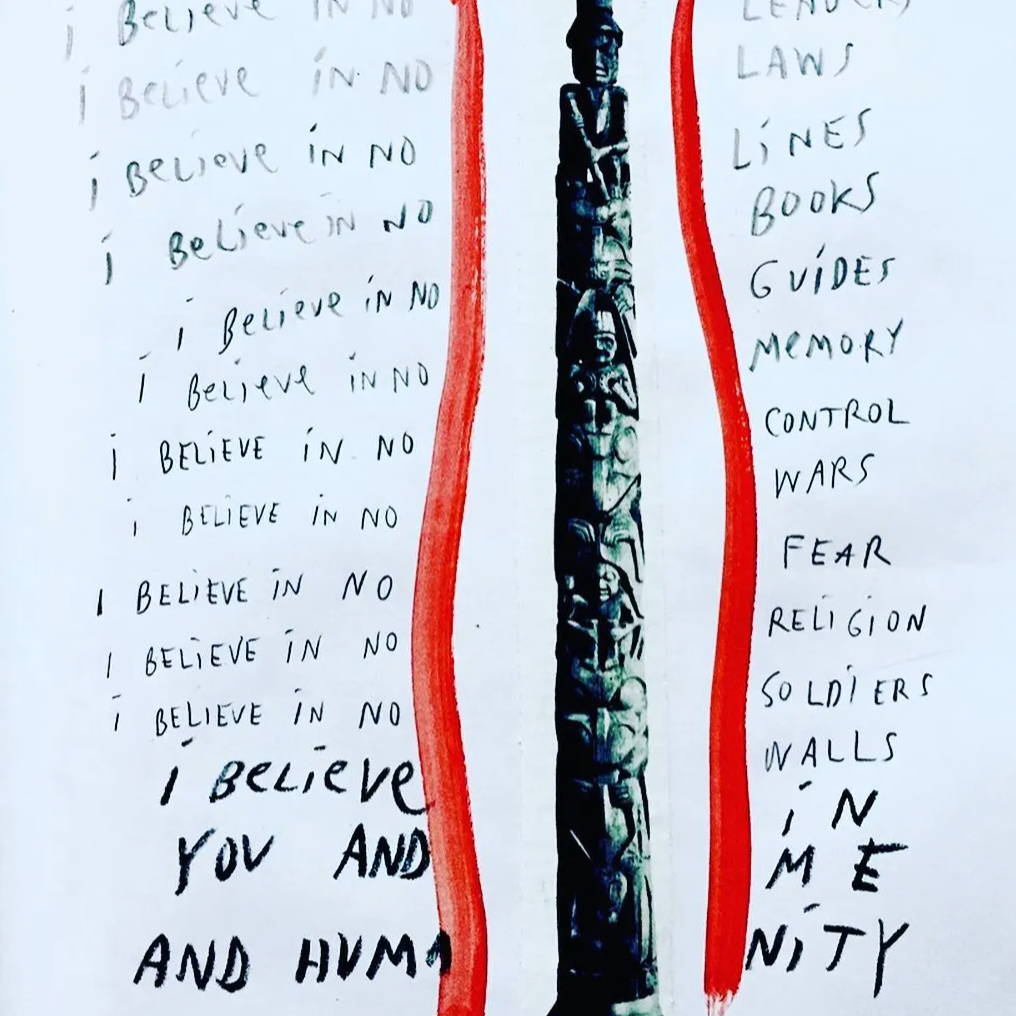 i Believe iN NO LEADERS
i Believe iN NO LAWS
i Believe iN NO LiNES
i Believe iN NO BOOKS
i Believe iN NO GUiDES
i Believe iN NO MeMORY
i BELiEVE iN NO CONTROL
i BELiEVE iN NO WARS
i BELiEVE iN NO FEAR
i BELiEVE iN NO RELiGiON
i BELiEVE iN NO SOLDiERS
WALLS
i BeLieve iN
YOU AND ME
AND HUMANiTY